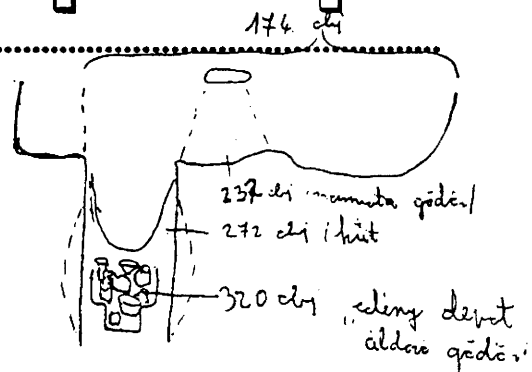 174 obj
237 obj gödör
272 obj kút
320 obj edény depot
áldozó gödör